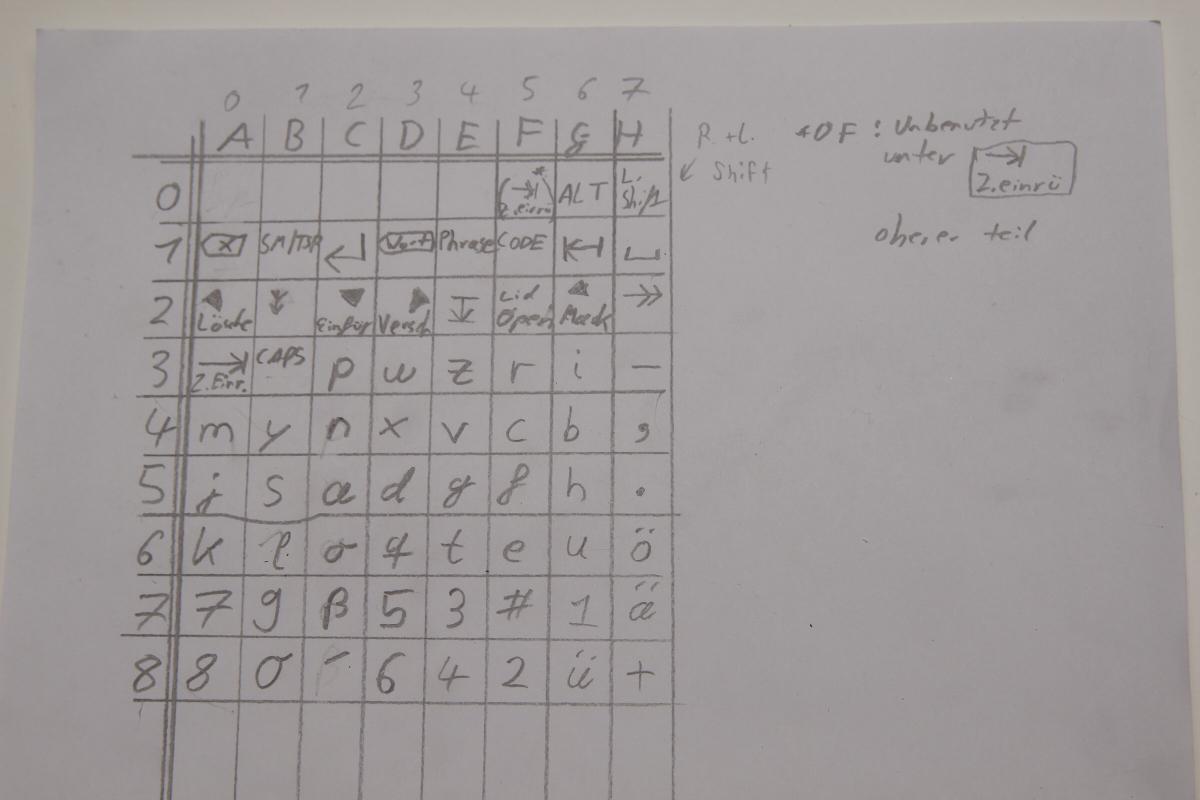 0 1 2 3 4 5 6 7
A B C D E F G H R. + L. *0F : Unbenutzt
Shift unter
0 Z.einrü ALT L. Shift Z.einrü
1 SM/TAB Wort Phrase CODE oberer teil
2 Lösche Einfüg Versch Lid Open Mark
3 Z.Einr. CAPS p w z r i –
4 m y n x v c b ,
5 j s a d g f h .
6 k l o q t e u ö
7 7 9 β 5 3 # 1 ä
8 8 0 ´ 6 4 2 ü +